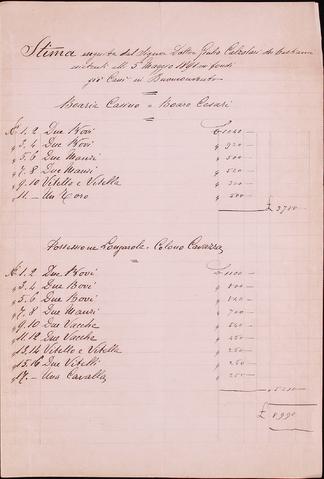 Stima eseguita dal Signor Dottor Giulio
esistenti alli 5 Maggio 1891 su fondi
già Cassi in Buonconvento
Boaria Casino = Boaro Cesari
N. 1. 2 Due Bovi £
" 3. 4 Due Bovi " 920 —
" 5. 6 Due Manzi " 500 —
" 7. 8 Due Manzi " 520 —
" 9. 10 Vitello e Vitella " 300 —
" 11. — Un Toro " 500 —
£
Possessione Longarola = Colono Cavazza
N. 1. 2 Due Bovi £ 1100 —
" 3. 4 Due Bovi " 800 —
" 5. 6 Due Bovi " —
" 7. 8 Due Manzi " 700 —
" 9. 10 Due Vacche " —
" 11. 12 Due Vacche " 450 —
" 13. 14 Vitello e Vitella " 260 —
" 15. 16 Due Vitelli " 250 —
" 17. — Una Cavalla " 250 —
£ 8990